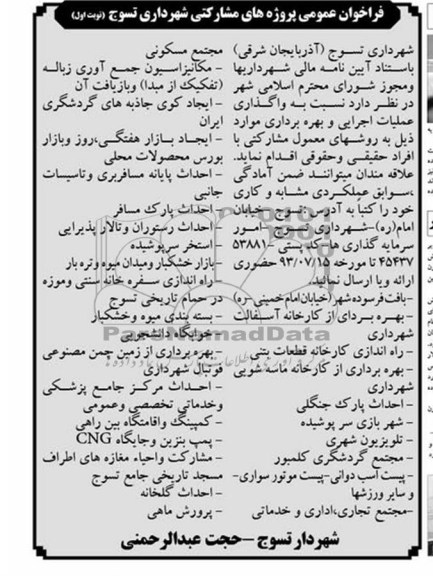 فراخوان عمومی پروژه های مشارکتی شهرداری تسوج (نوبت اول)
شهرداری تسوج (آذربایجان شرقی)
باستناد آیین نامه مالی شهرداریها
ومجوز شورای محترم اسلامی شهر
در نظر دارد نسبت به واگذاری
عملیات اجرایی و بهره برداری موارد
ذیل به روشهای معمول مشارکتی با
افراد حقیقی وحقوقی اقدام نماید.
علاقه مندان میتوانند ضمن آمادگی
،سوابق عملکردی مشابه و کاری
خود را کتباً به آدرس تسوج خیابان
امام(ره)-شهرداری تسوج -امور
سرمایه گذاری ها-کد پستی ۵۳۸۸۱-
۴۵۴۳۷ تا مورخه ۹۳/۰۷/۱۵ حضوری
ارائه ویا ارسال نمائید.
-بافت فرسوده شهر(خیابان امام خمینی -ره)
- بهره بردای از کارخانه آسفالت
شهرداری
- راه اندازی کارخانه قطعات بتنی
- بهره برداری از کارخانه ماسه شویی
شهرداری
- احداث پارک جنگلی
- شهر بازی سر پوشیده
- تلویزیون شهری
- مجتمع گردشگری کلمبور
- پیست اسب دوانی-پیست موتور سواری-
و سایر ورزشها
-مجتمع تجاری،اداری و خدماتی
مجتمع مسکونی
- مکانیزاسیون جمع آوری زباله
(تفکیک از مبدا) وبازیافت آن
- ایجاد کوی جاذبه های گردشگری
ایران
- ایجاد بازار هفتگی،روز وبازار
بورس محصولات محلی
- احداث پایانه مسافربری وتاسیسات
جانبی
- احداث پارک مسافر
- احداث رستوران وتالار پذیرایی
- استخر سرپوشیده
-بازار خشکبار ومیدان میوه وتره بار
- راه اندازی سفره خانه سنتی وموزه
در حمام تاریخی تسوج
- بسته بندی میوه وخشکبار
-خوابگاه دانشجویی
-بهره برداری از زمین چمن مصنوعی
فوتبال شهرداری
- احداث مرکز جامع پزشکی
وخدماتی تخصصی وعمومی
- کمپینگ واقامتگاه بین راهی
- پمپ بنزین وجایگاه CNG
- مشارکت واحیاء مغازه های اطراف
مسجد تاریخی جامع تسوج
- احداث گلخانه
- پرورش ماهی
شهردار تسوج -حجت عبدالرحمنی
ParsNamadData